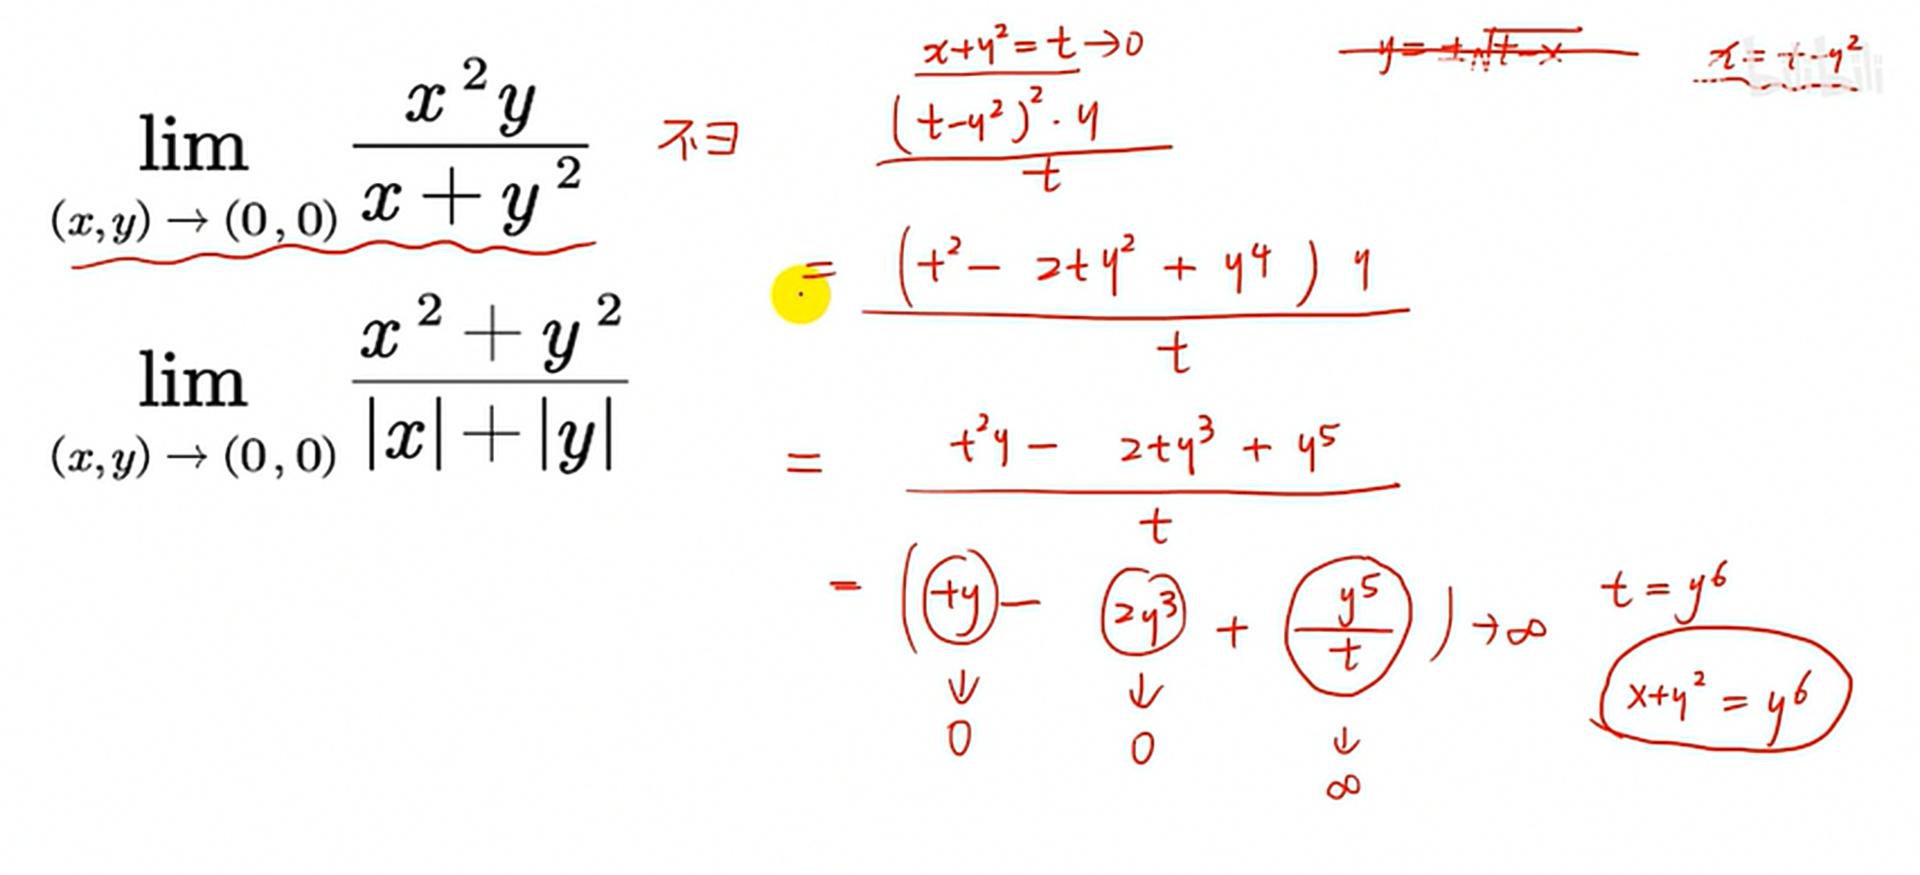 lim (x,y)→(0,0) x²y / (x + y²) 不∃
lim (x,y)→(0,0) (x² + y²) / (|x| + |y|)
x+y²=t→0
y=±√(t-x)
x=t-y²
bilibili
(t-y²)²·y / t
= (t²- 2ty² + y⁴) y / t
= (t²y - 2ty³ + y⁵) / t
= (ty - 2y³ + y⁵/t) →∞
↓ ↓ ↓
0 0 ∞
t = y⁶
x+y² = y⁶